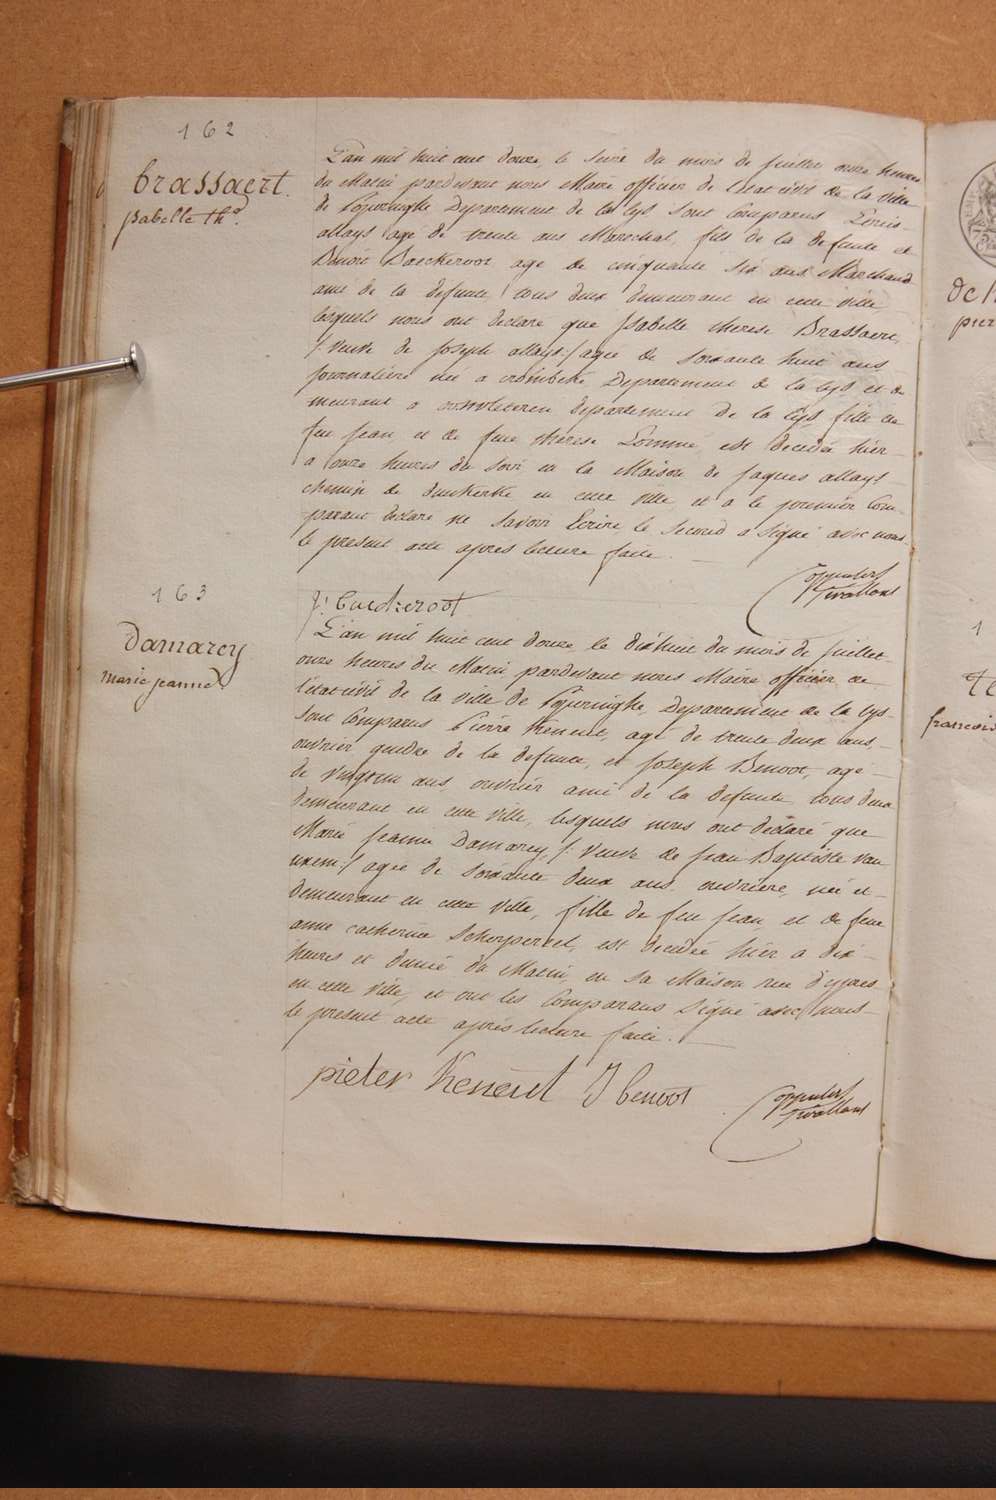 162
Brassaert
isabelle the
L'an mil huit cent douze, le seize du mois de juillet onze heures
du Matin pardevant nous Maire officier de l'état civil de la ville
de Poperinghe Departement de la Lys sont Comparus Louis
allays agé de trente ans Marechal, fils de la defunte et
Benoit agé de cinquante six ans Marchand
ami de la defunte, tous deux demeurant en cette ville,
lesquels nous ont declaré que Isabelle therese Brassaert,
/: veuve de Joseph allays :/ agée de soixante huit ans
journaliere née a crombeke, Departement de la Lys et de
meurant a departement de la Lys fille de
feu jean, et de feue therese est decedée hier
a onze heures du soir en la Maison de jaques allays
chemin de dunkerke en cette ville, et a le premier Com-
parant declaré ne savoir Ecrire, le second a signé avec nous
le present acte apres lecture faite.
163
Damarey
marie jeanne
L'an mil huit cent douze le dixhuit du mois de juillet
onze heures du Matin pardevant nous Maire officier de
l'état civil de la ville de Poperinghe, Departement de la Lys
sont Comparus Pierre Kenent, agé de trente deux ans,
ouvrier gendre de la defunte, et Joseph Benoot, agé
de vingt ans, ouvrier ami de la defunte tous deux
demeurant en cette ville, lesquels nous ont declaré que
Marie jeanne Damarey, /: veuve de jean Baptiste van
uxem :/ agée de soixante deux ans ouvriere, née et
demeurant en cette ville, fille de feu jean, et de feue
anne catherine est decedée hier a dix
heures et demie du Matin en sa Maison rue d'ypres
en cette ville, et ont les Comparans signé avec nous
le present acte après lecture faite.
pieter Kenent J benoot